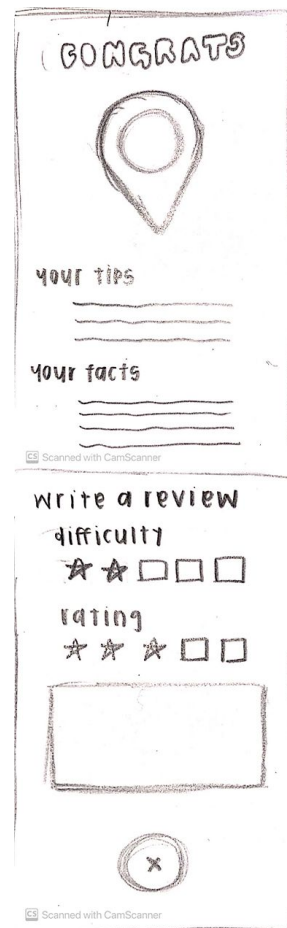 CONGRATS
your tips
your facts
CS Scanned with CamScanner
write a review
difficulty
rating
x
CS Scanned with CamScanner